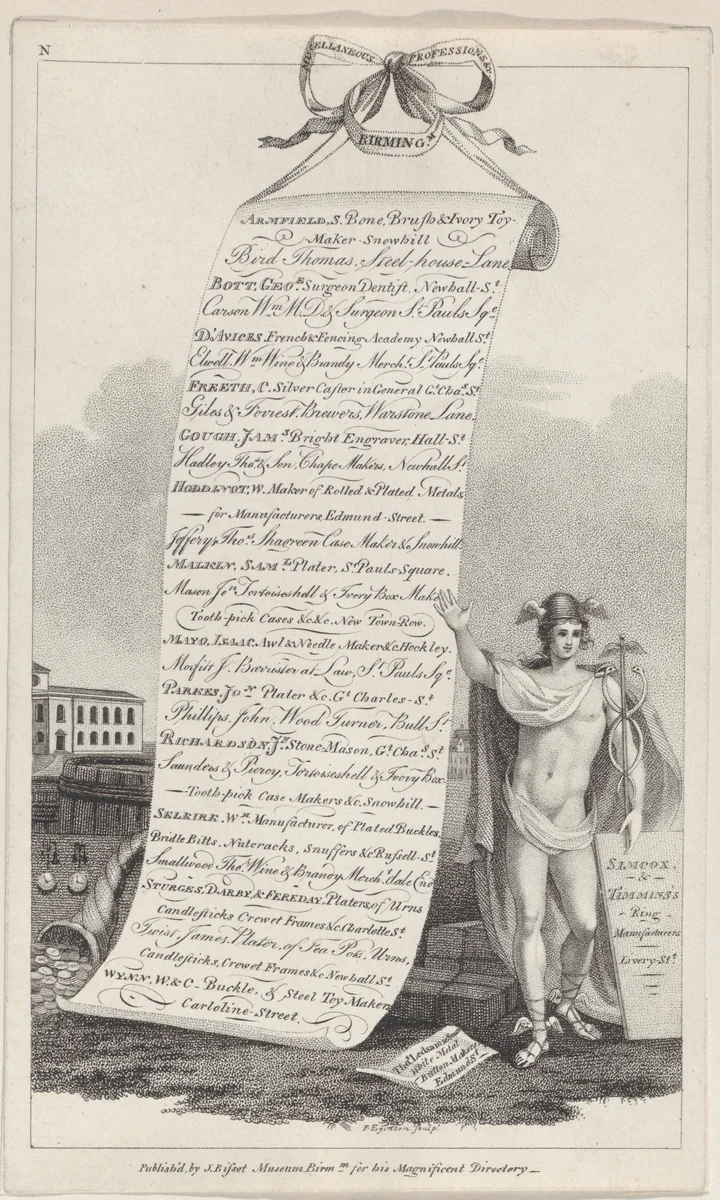 N
MISCELLANEOUS PROFESSIONS &c
BIRMING.M
ARMFIELD, S. Bone, Brush & Ivory Toy-
Maker - Snowhill
Bird Thomas. Steel-house-Lane.
BOTT, GEO.E Surgeon Dentist, Newhall-S.t
Carson W.m M.D. & Surgeon S.t Pauls Sq.e
D'AVICES, French & Fencing Academy Newhall S.t
Elwell. W.m Wine & Brandy Merch.t S.t Pauls Sq.e
FREETH, C. Silver Caster in General G.t Cha.s S.t
Giles & Forrest. Brewers, Warstone Lane.
GOUGH, JAM.s Bright Engraver, Hall-S.t
Hadley Tho.s & Son. Chape Makers, Newhall S.t
HODDINOT, W. Maker of Rolled & Plated Metals
— for Manufacturers, Edmund-Street. —
Jefferys Tho.s Shagreen Case Maker & Snowhill.
MALKIN, SAM.L Plater, S.t Pauls-Square.
Mason Jo.n Tortoiseshell & Ivory Box Make
Tooth-pick Cases &c.&c. New Town-Row.
MAYO, ISAAC, Awl & Needle Maker &c. Hockley.
Morfitt J. Barrister at Law, S.t Pauls Sq.e
PARKES, JO.N Plater &c. G.t Charles-S.t
Phillips, John. Wood Turner, Bull S.t
RICHARDSON, J.n Stone-Mason, G.t Cha.s S.t
Saunders & Piercy, Tortoiseshell & Ivory Box
— Tooth-pick Case Makers &c. Snowhill. —
SELKIRE, W.m Manufacturer, of Plated Buckles,
Bridle Bitts, Nutcracks, Snuffers &c Russell-S.t
Smallwood Tho.s Wine & Brandy Merch.t dale End
STURGES, DARBY, & FEREDAY, Platers, of Urns
Candlesticks Crewet Frames &c. Charlotte S.t
Twist, James, Plater, of Tea Pots, Urns,
Candlesticks, Crewet Frames &c Newhall S.t
WYNN, W. & C- Buckle, & Steel Toy Maker
Carloline-Street.
SIMCOX,
&
TIMMINS's
Ring
Manufacturers
Livery-S.t
Tho.s Ledsam
White Metal
Button-Maker
Edmund S.t
F. Eginton. Sculp.t
Publish'd, by J. Bisset Museum Birm.m for his Magnificent Directory —